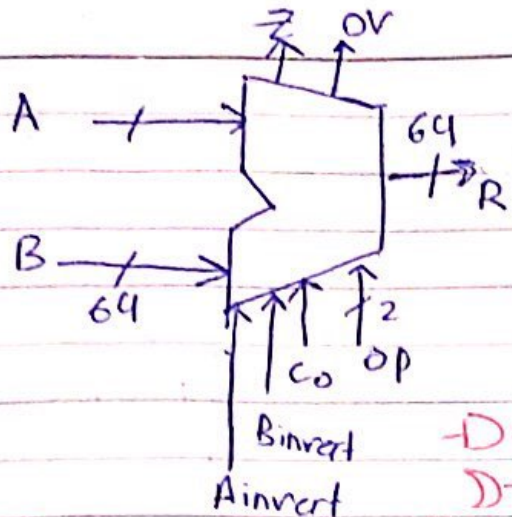 Z OV
A
64
R
B
64
2
Co OP
Binvert
Ainvert